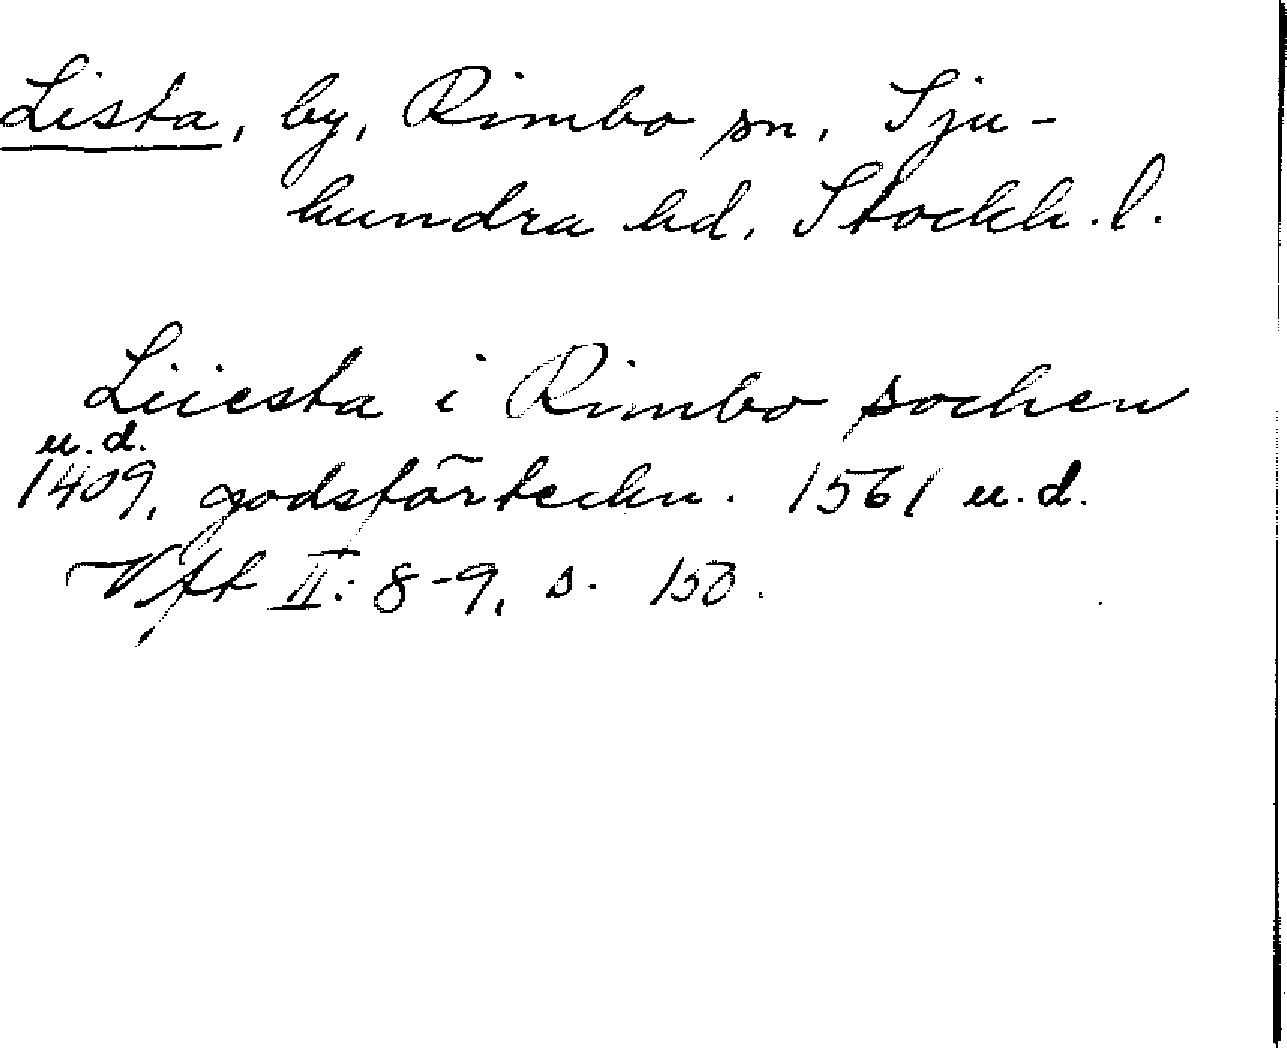 Lista, by, Rimbo sn, Sju-
hundra hd, Stockh. l.
Liiesta i Rimbo sochen
u.d.
1409, godsförteckn. 1561 u.d.
Vft II: 8-9, s. 150.